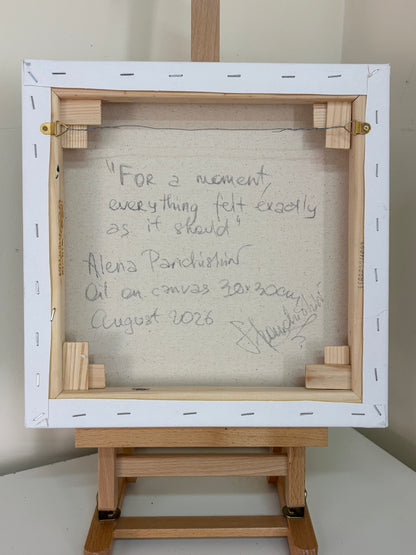 "For a moment,
everything felt exactly
as it should"
Alena Parichishin
Oil on canvas 30x30cm
August 2026